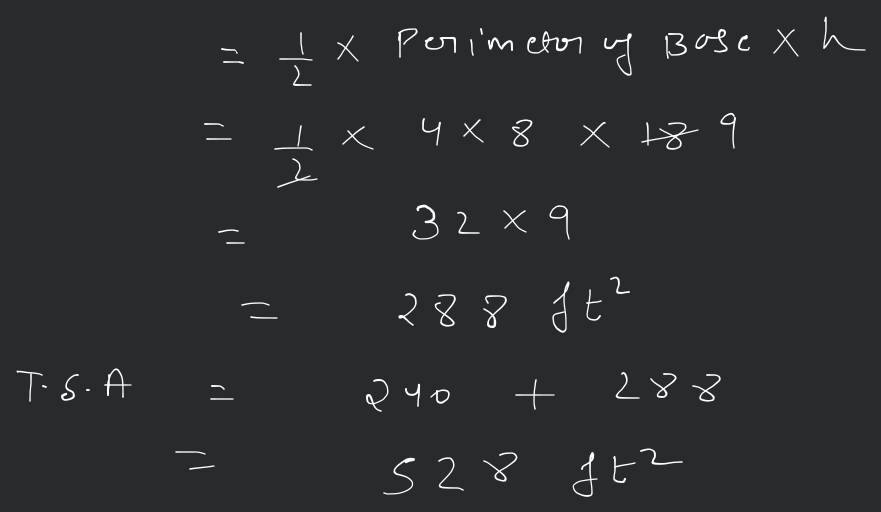 = 1/2 × Perimeter of Base × h
= 1/2 × 4 × 8 × 18 9
= 32 × 9
= 288 ft²
T.S.A = 240 + 288
= 528 ft²